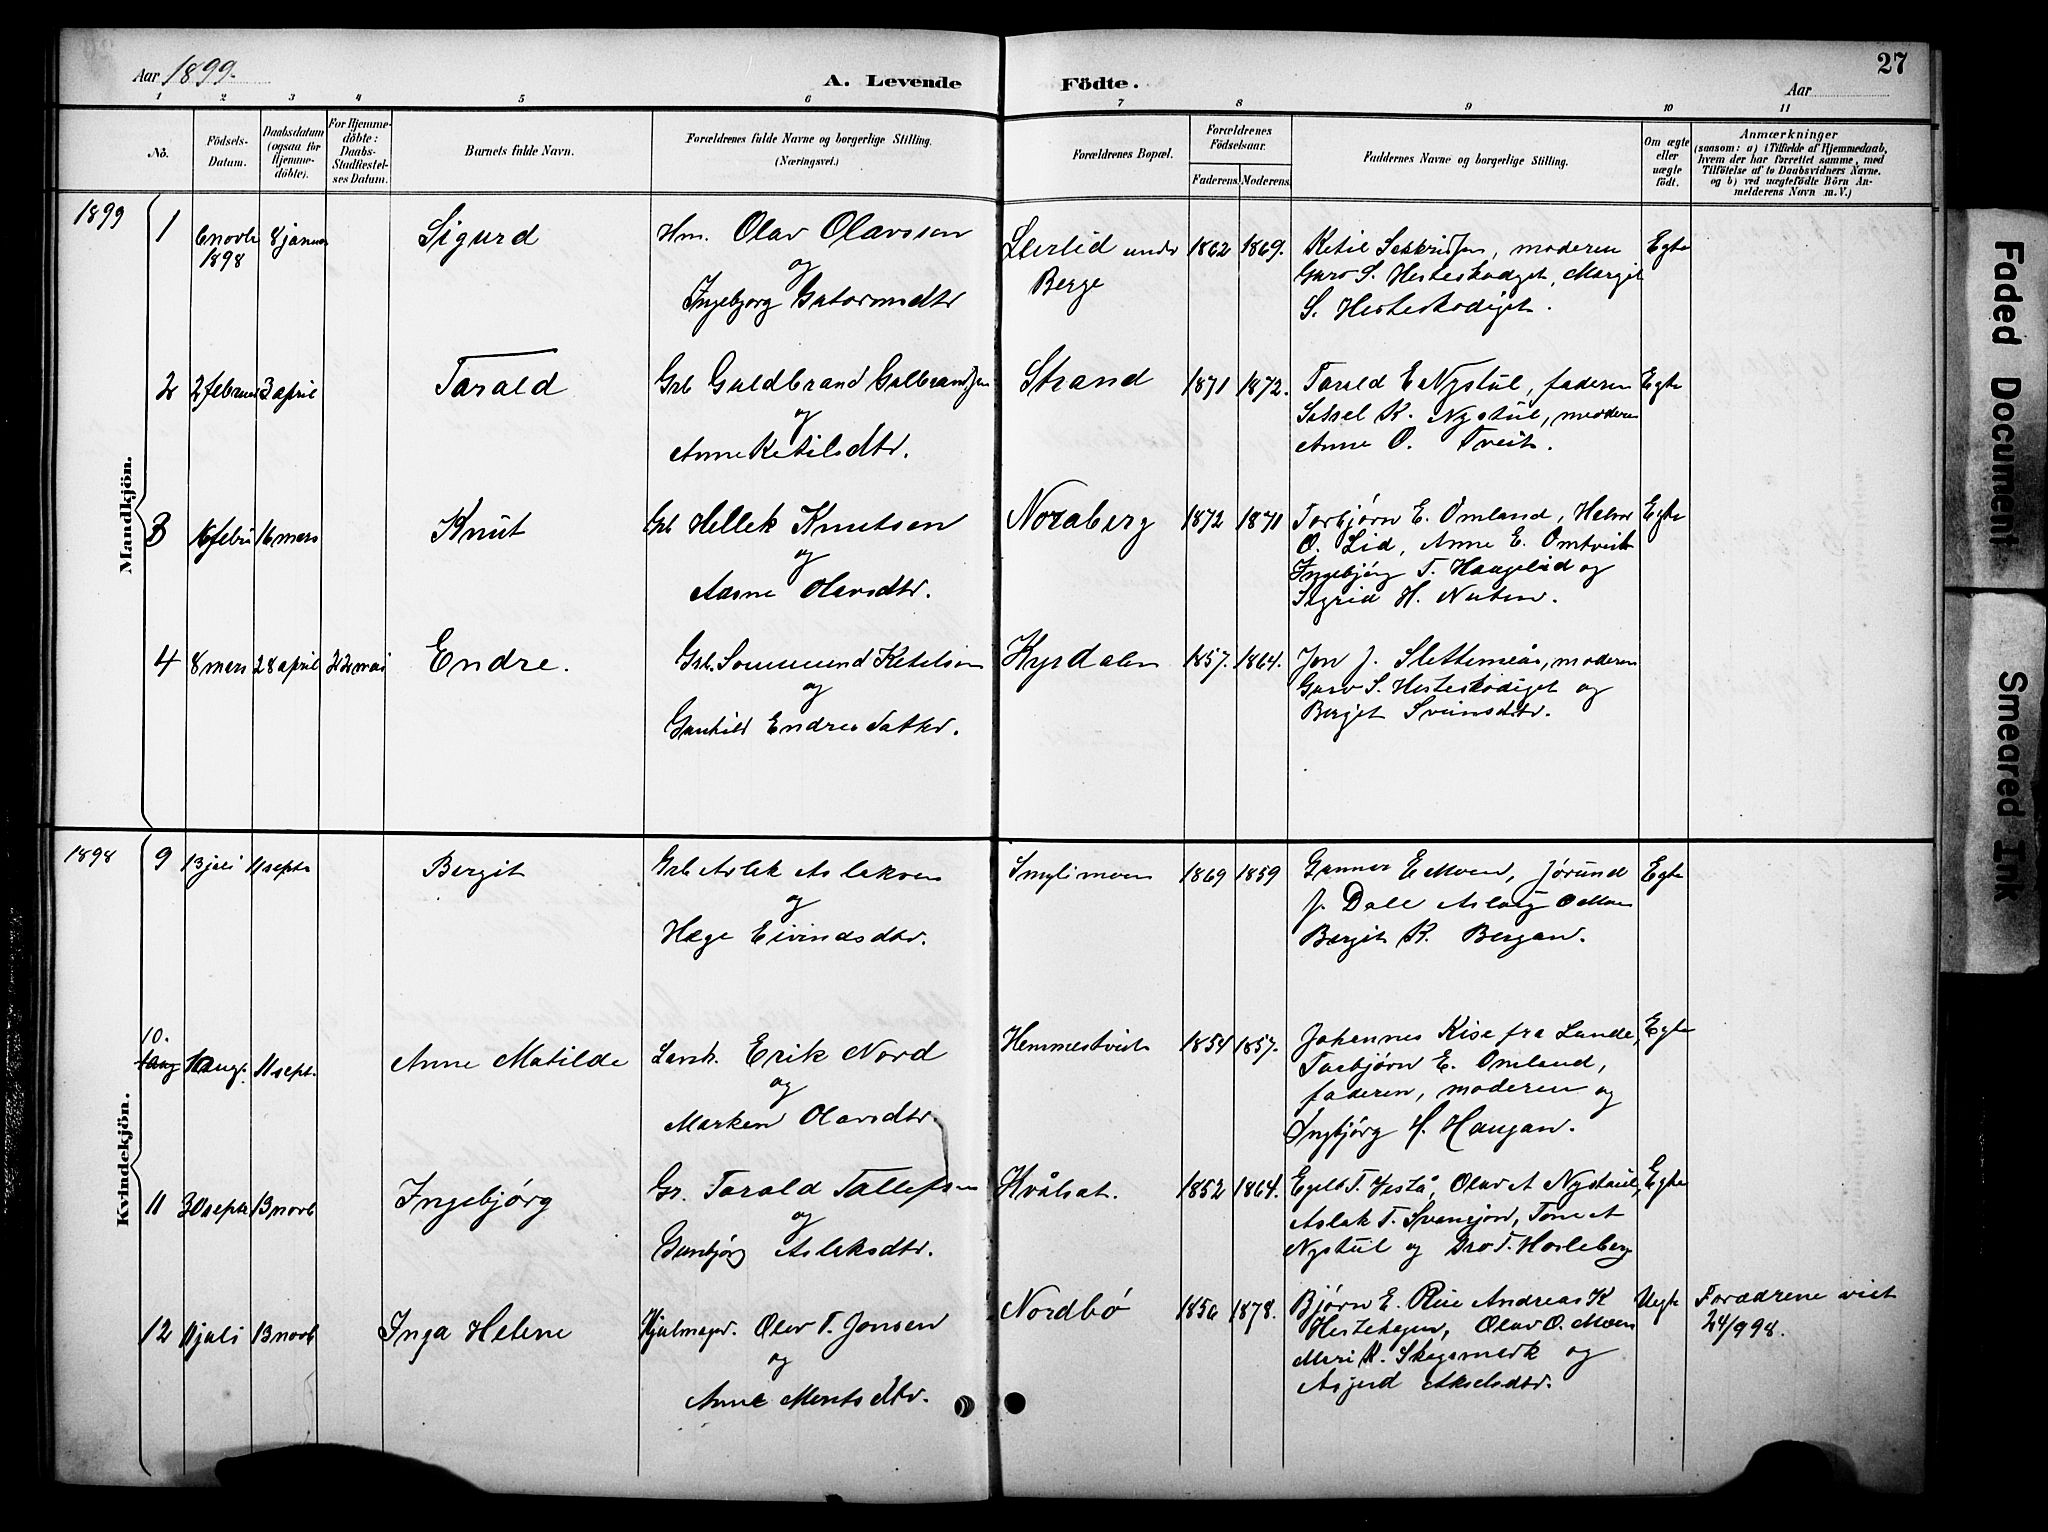 27
Aar 1899.
A. Levende Födte.
Aar
1 2 3 4 5 6 7 8 9 10 11
No.
Födsels-Datum.
Daabsdatum (ogsaa for Hjemme-döbte).
For Hjemme-döbte: Daabs-Stadfæstel-ses Datum.
Barnets fulde Navn.
Forældrenes fulde Navne og borgerlige Stilling. (Næringsvei.)
Forældrenes Bopæl.
Forældrenes Födselsaar.
Faderens. Moderens.
Faddernes Navne og borgerlige Stilling.
Om ægte eller uægte födt.
Anmærkninger
(saasom: a) i Tilfælde af Hjemmedaab,
hvem der har forrettet samme, med
Tilföielse af to Daabsvidners Navne.
og b) ved uægtefödte Börn An-
melderens Navn m.V.)
Mandkjön.
1899 1 6 novbr 1898 8 januar Sigurd Hm. Olav Olavssen og Ingebjørg Gutormsdtr Leirlid under Berge 1862 1869. Ketil Sjskridsen, moderen Egte
Guro S. Hesteskodget, Margit
S. Hesteskodiget.
2 2 februar 3 april Tarald Grb Guldbrand Galbrandsen og Anne Ketilsdtr. Strand 1871 1872. Tarald E Nystul, faderen Egte
K. Nystul, moderen
Anne O. Tveit.
3 16 febr 16 mars Knut Grb Hellek Knutsen og Aasne Olavsdtr. Noraberg 1872 1871 Torbjørn E. Omland, Halvor Egte
O. Lid, Anne E. Omtveit
Ingebjörg T. Haugelid og
Sigrid H. Nuten.
4 8 mars 28 april 22 mai Endre. Grb. Sommund Ketelsen og Gunhild Endresdatter. Kyrdalen 1857. 1864. Jon J. Slettemeås, moderen
Guro S. Hesteskodiget og
Bergit Sveinsdtr.
Kvindekjön.
1898 9 13 juli 11 septr Bergit Grb Aslak Aslaksen og Hæge Eivindsdtr. Smylimoen 1869 1859 Gunnar E Moen, Jørund Egte
J. Dale Aslaug O Moen
Bergit K. Bergan.
10. 1 aug. 11 sept. Anne Matilde Lensm. Erik Nord og Marken Olavsdtr. Hemmestveit 1854 1857. Johannes Kise fra Lunde, Egte
Torbjørn E. Omland,
faderen, moderen og
Ingbjørg H. Haugan.
11 30 septr 13 novb Ingebjørg Gr. Tarald Tallefsen og Gunbjørg Aslaksdtr. Kvålsat. 1852 1864. Egeld T. Vestå, Olav A Nystaul, Egte
Aslak T. Svanejord, Tone A
Nystul og Gro T. Hosleberg
12 11 juli 13 novb Inga Helene Hjulmager. Olav T. Jonsen og Anne Montsdtr. Nordbø 1856 1878. Bjørn E. Rue Andreas K Uegte Foradrene vist 24/9 98.
Hestehagen, Olav O. Moen
Mari K. Skogsmerk og
Asjerd Akselsdtr.
Faded Document
Smeared Ink